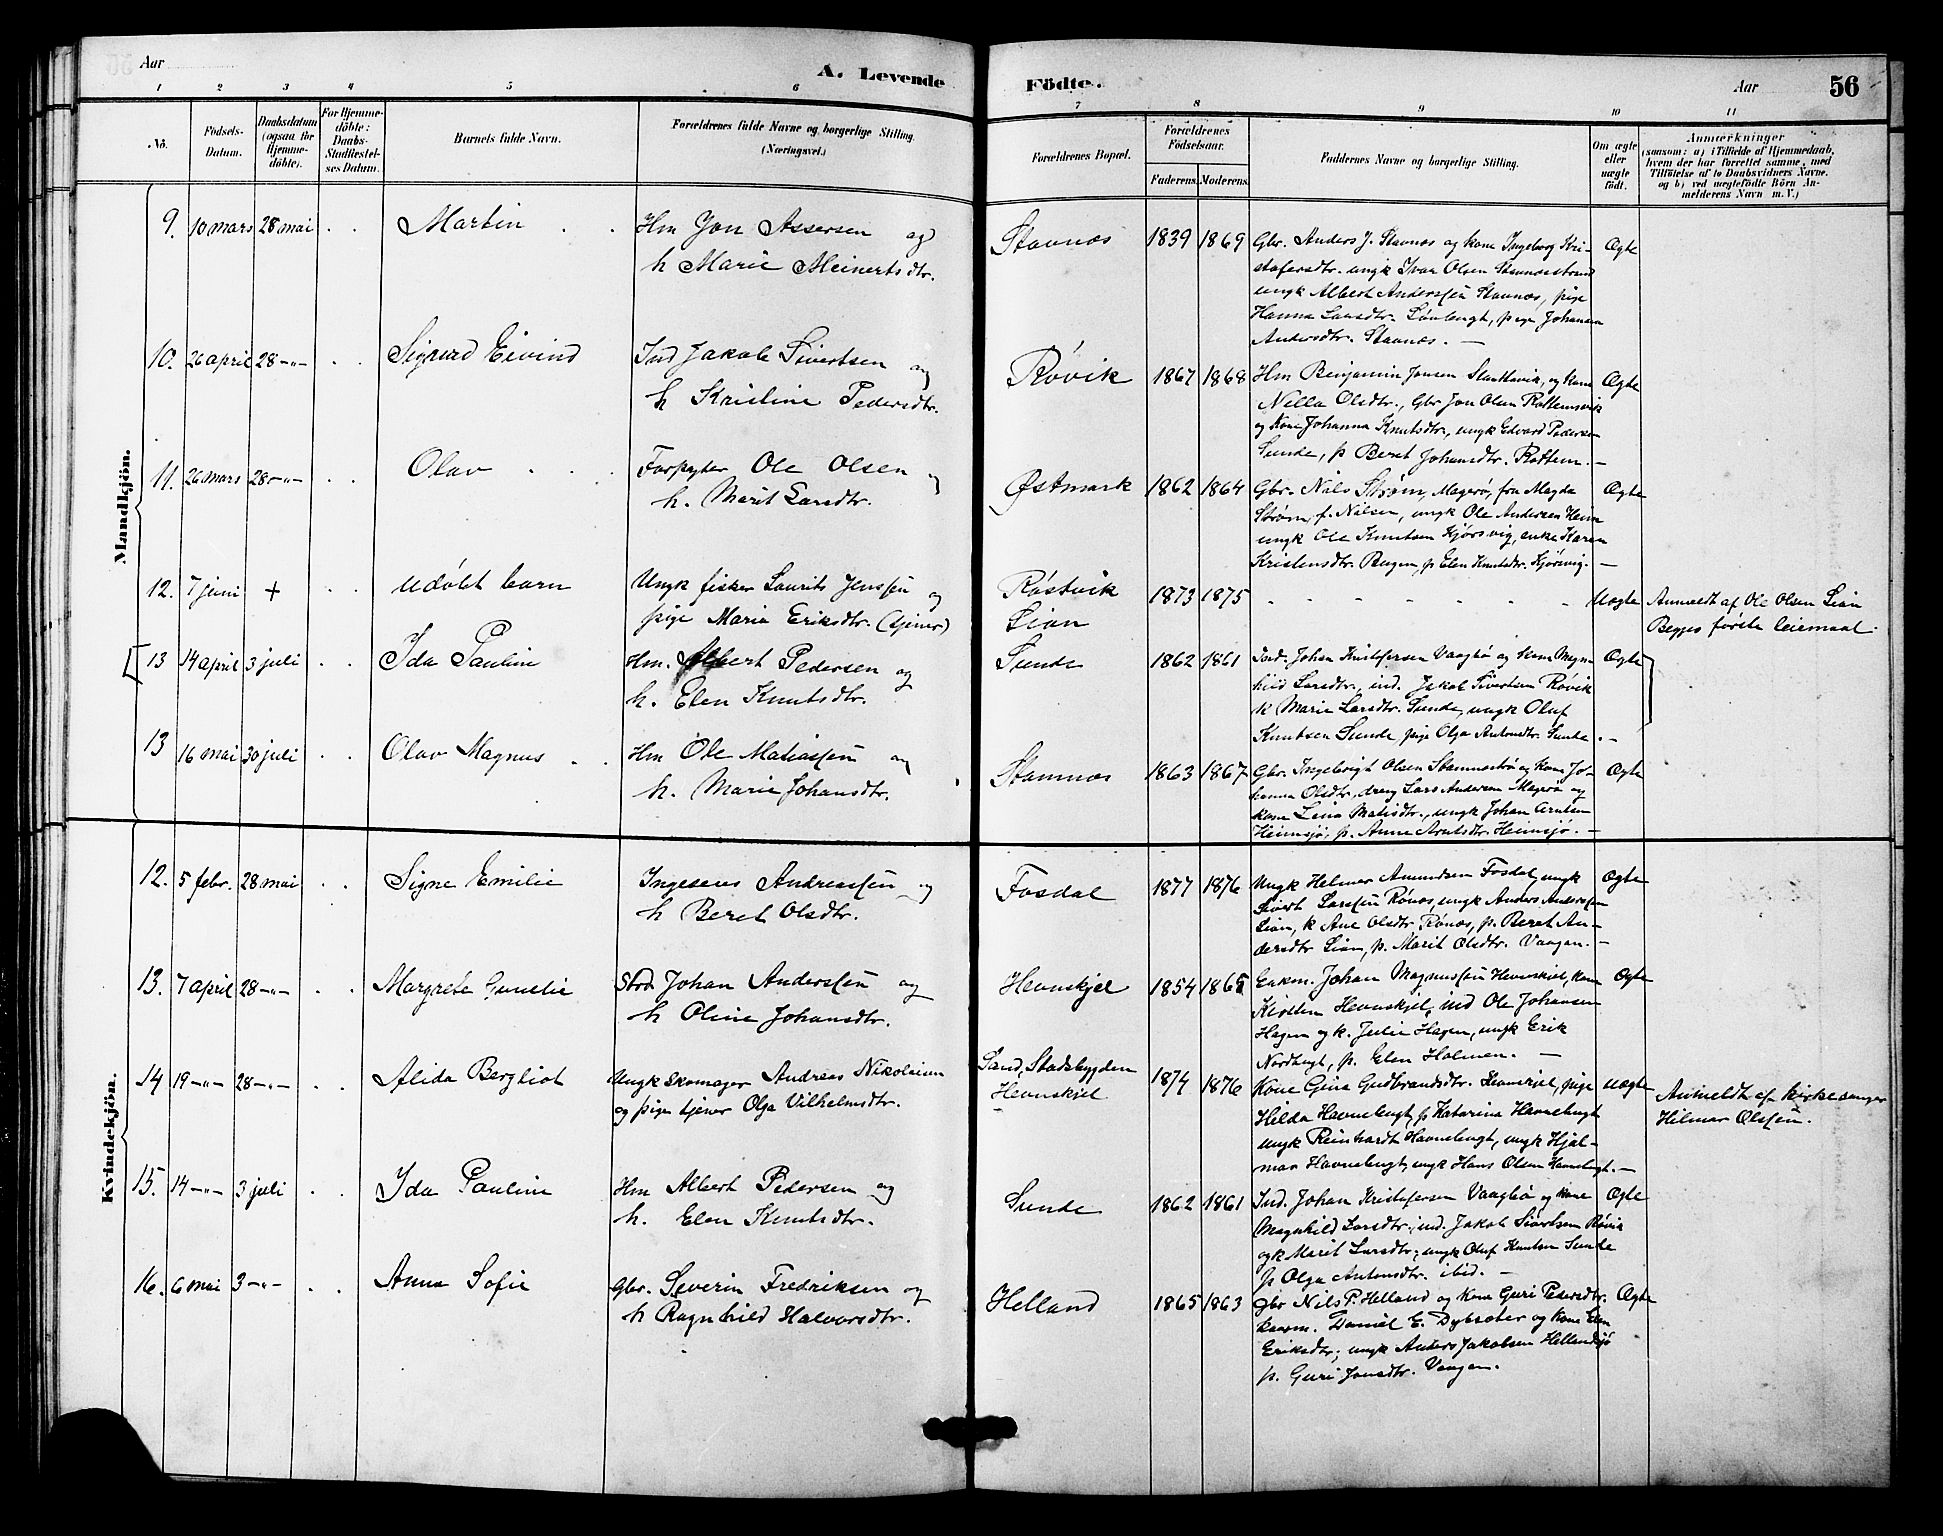 Aar
A. Levende
Födte.
Aar
56
1 2 3 4 5 6 7 8 9 10 11
No.
Födsels-
Datum.
Daabsdatum
(ogsaa for
Hjemme-
döbte).
For Hjemme-
döbte:
Daabs-
Stadfæstel-
ses Datum.
Barnets fulde Navn.
Forældrenes fulde Navne og borgerlige Stilling.
(Næringsvei.)
Forældrenes Bopæl.
Forældrenes
Födselsaar.
Faderens. Moderens.
Faddernes Navne og borgerlige Stilling.
Om ægte
eller
uægte
födt.
Anmærkninger
(saasom: a) i Tilfælde af Hjemmedaab,
hvem der har forrettet samme, med
Tilföielse af to Daabsvidners Navne.
og b) ved uægtefödte Börn An-
melderens Navn m. V.)
Mandkjön.
9. 10 mars 28 mai Martin
Hm Jon Assersen og
h Marie Meinertsdtr.
Stavnæs 1839 1869
Gbr. Anders J. Stavnæs og kone Ingeborg Kri-
stofersdtr. ungk Ivar Olsen Stamnæsstrand
ungk Albert Anderssen Stavnæs, pige
Hanna Larsdtr. pige Johanna
Andersdtr. Stavnæs. —
Ægte
10. 26 april 28 -"- Sigurd Eivind
Ind Jakob Sivertsen og
h Kristine Pedersdtr.
Røvik 1867 1868
Hm Benjamin Jonsen og kone
Nella Olsdtr., Gbr Jon Olsen Rottemsvik
og kone Johanna Knutsdtr., ungk Edvard Pedersen
Sunde, p Beret Johansdtr. Rottem. —
Ægte
11. 26 mars 28 -"- Olav
Forpagter Ole Olsen og
h. Marit Larsdtr.
Østmark 1862 1864
Gbr. Nils Strøm, Magerø, fru Magda
Strøm, f. Nilsen, ungk Ole Andersen Heim
ungk Ole Knutsen Kjørsvig, enke Karen
Kristensdtr. Bugen, p Elen Knutsdtr. Kjørsvig. —
Ægte
12. 7 juni + udøbt barn
Ungk fisker Laurits Jenssen og
pige Maria Eriksdtr. (tjener)
Røstvik
Lian
1873 1875
Uægte
Anmeldt af Ole Olsen Lian
Begges første leiermaal.
[13 14 april 3 juli Ida Pauline
Hm. Albert Pedersen og
h. Elen Knutsdtr.
Sunde 1862 1861
Ind. Johan Kristofersen Vaagbø og kone Magn-
hild Larsdtr., ind. Jakob Sivertsen Røvik
k Marie Larsdtr. Sunde, ungk Oluf
Knutsen Sunde, pige Olga Antonsdtr. Sunde. —
Ægte ]
13 16 mai 30 juli Olav Magnus
Hm Ole Matiassen og
h. Marie Johansdtr.
Stamnæs 1863 1867
Gbr. Ingebrigt Olsen Stamnæstrø og kone Jo-
hanna Olsdtr., dreng Lars Andersen Magerø og
kone Lina Matisdtr., ungk Johan Arntsen
Heimsjø, p. Anne Arntsdtr. Heimsjø. —
Ægte
Kvindekjön.
12. 5 febr. 28 mai Signe Emilie
Andreassen og
h Beret Olsdtr.
Fosdal 1877 1876
Ungk Helmer Amundsen Fosdal, ungk
Sivert Larssen Rønæs, ungk Anders Anderssen
Lian, k Ane Olsdtr. Rønæs, p. Beret An-
dersdtr Lian, p. Marit Olsdtr. Vaagen. —
Ægte
13. 7 april 28 -"- Margrete Gunelie
Strd Johan Anderssen og
h Oline Johansdtr.
Hevnskjel 1854 1865
Enkm. Johan Magnussen Hevnskjel, kone
Kirsten Hevnskjel, ind Ole Johansen
Hagen og k. Julie Hagen, ungk Erik
Nordbugt, p. Elen Holmen. —
Ægte
14 19 -"- 28 -"- Alida Bergliot
Ungk Skomager Andreas Nikolaisen
og pige tjener Olga Vilhelmsdtr.
Sand, Stadsbygden
Hevnskjel
1874 1876
Kone Gina Gudbrandsdtr. Hevnskjel, pige
Hilda Havnebugt, p Katarina Havnebugt
ungk Reinhardt Havnebugt, ungk Hjal-
mar Havnebugt, ungk Hans Olsen Havnebugt. —
Uægte
Anmeldt af kirkesanger
Hilmar Olssen.
15. 14 -"- 3 juli Ida Pauline
Hm Albert Pedersen og
h. Elen Knutsdtr.
Sunde 1862 1861
Ind. Johan Kristofersen Vaagbø og kone
Magnhild Larsdtr., ind. Jakob Sivertsen Røvik
og k Marit Larsdtr., ungk Oluf Knutsen Sunde
p Olga Antonsdtr. ibid. —
Ægte
16. 6 mai 3 -"- Anna Sofie
Gbr. Severin Fredriksen og
h Ragnhild Halvorsdtr.
Helland 1865 1863
Gbr Nils P. Helland og kone Guri Pedersdtr.
kaarm. Daniel E. Dybsæter og kone Elen
Eriksdtr; ungk Anders Jakobsen Hellandsjø
p. Guri Jonsdtr. Vaagan.
Ægte